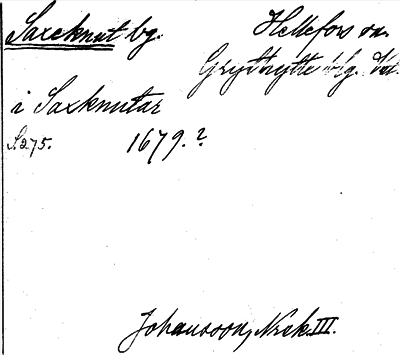 Saxeknut bg. Hellefors sn.
Grythytte blg. Vstl.
i Saxknutar
S. 275. 1679.?
Johansson, Norek. III.